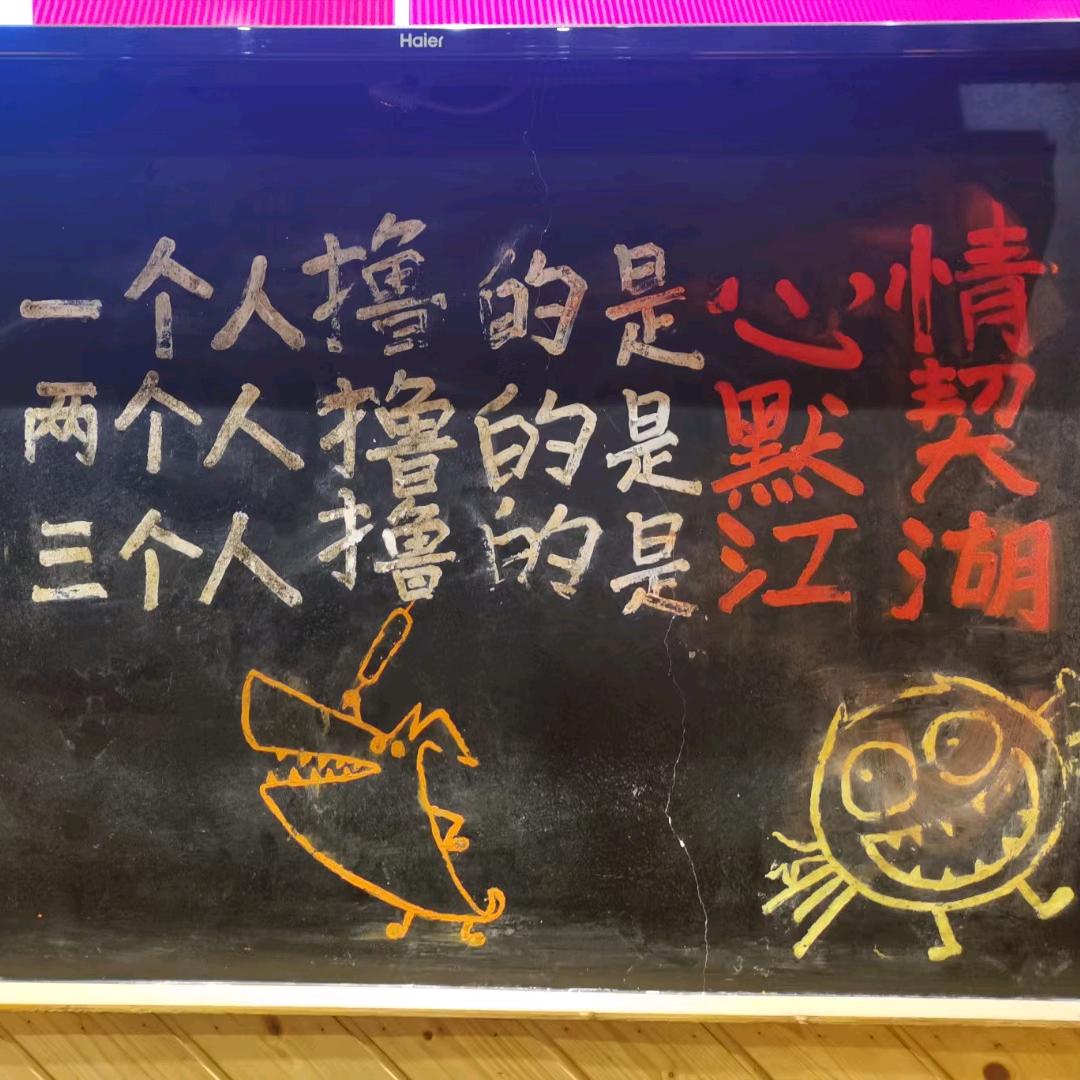 Haier
一个人撸的是心情
两个人撸的是默契
三个人撸的是江湖